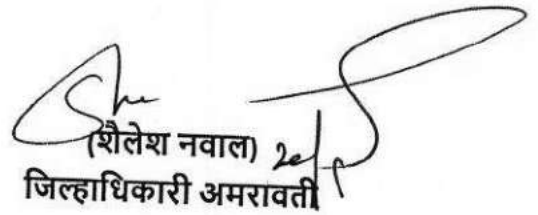 (शैलेश नवाल)
जिल्हाधिकारी अमरावती